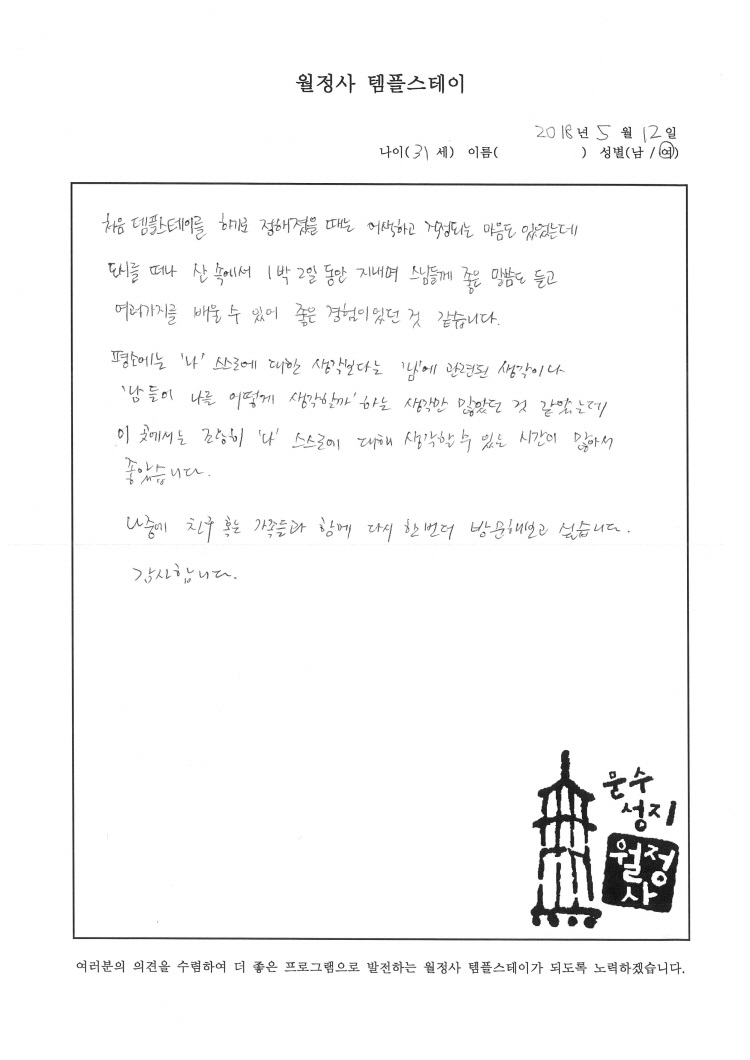 월정사 템플스테이
2018년 5월 12일
나이(31세) 이름( ) 성별(남 / 여)
처음 템플스테이를 하기로 정해졌을 때는 어색하고 걱정되는 마음도 있었는데
도시를 떠나 산 속에서 1박 2일 동안 지내며 스님들께 좋은 말씀도 듣고
여러가지를 배울 수 있어 좋은 경험이었던 것 같습니다.
평소에는 '나' 스스로에 대한 생각보다는 '남'에 관련된 생각이나
'남들이 나를 어떻게 생각할까' 하는 생각만 많았던 것 같았는데
이 곳에서는 조용히 '나' 스스로에 대해 생각할 수 있는 시간이 많아서
좋았습니다.
나중에 친구 혹는 가족들과 함께 다시 한번더 방문해보고 싶습니다.
감사합니다.
문수
성지
월정
사
여러분의 의견을 수렴하여 더 좋은 프로그램으로 발전하는 월정사 템플스테이가 되도록 노력하겠습니다.